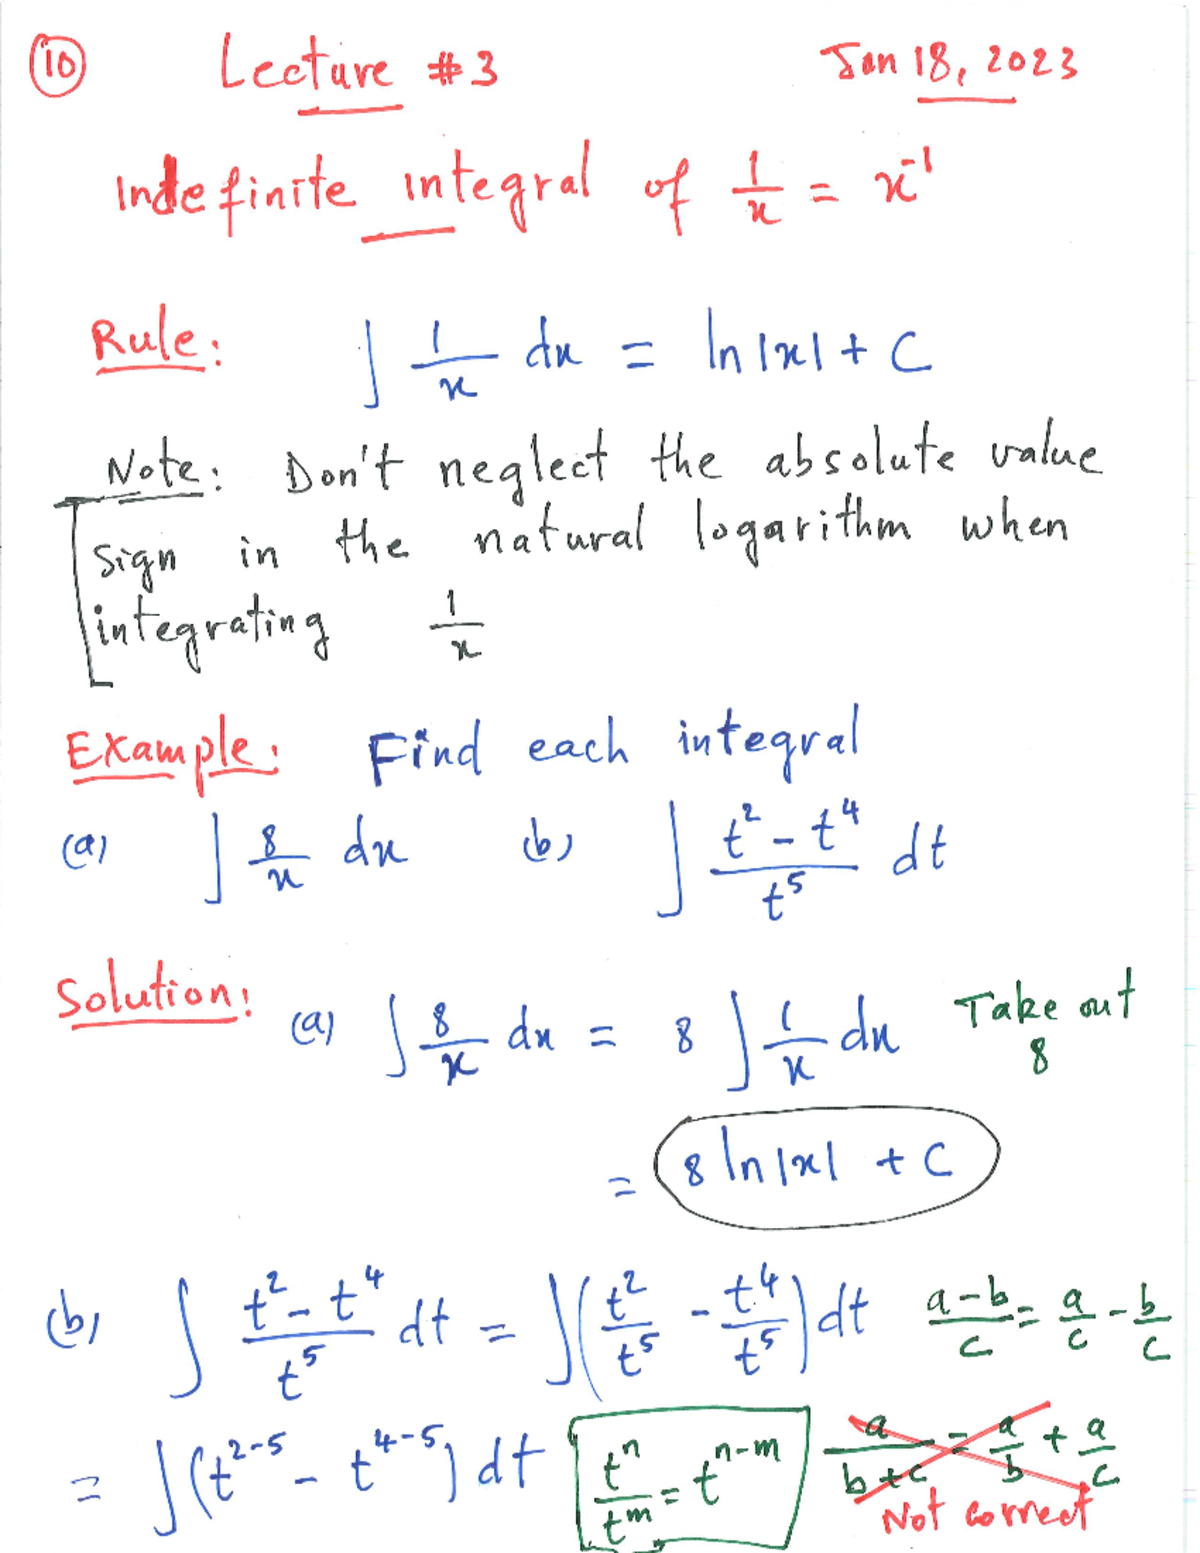 10 Lecture #3 Jan 18, 2023
Indefinite integral of 1/x = x^-1
Rule: ∫ 1/x dx = ln|x| + C
Note: Don't neglect the absolute value
sign in the natural logarithm when
integrating 1/x
Example: Find each integral
(a) ∫ 8/x dx (b) ∫ (t^2 - t^4)/t^5 dt
Solution: (a) ∫ 8/x dx = 8 ∫ 1/x dx Take out
8
= 8 ln|x| + C
(b) ∫ (t^2 - t^4)/t^5 dt = ∫ (t^2/t^5 - t^4/t^5) dt (a-b)/c = a/c - b/c
= ∫ (t^2-5 - t^4-5) dt t^n/t^m = t^n-m a/(b+c) = a/b + a/c
Not correct